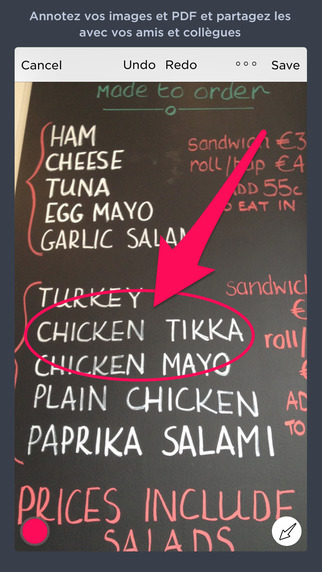 Annotez vos images et PDF et partagez les
avec vos amis et collègues
Cancel Undo Redo Save
Made to order
HAM
CHEESE
TUNA
EGG MAYO
GARLIC SALAM
sandwich €3
roll/ €4
ADD 55c
EAT IN
TURKEY
CHICKEN TIKKA
CHICKEN MAYO
PLAIN CHICKEN
PAPRIKA SALAMI
sandwic
€
roll/
AD
TO
PRICES INCLUDE
SALADS